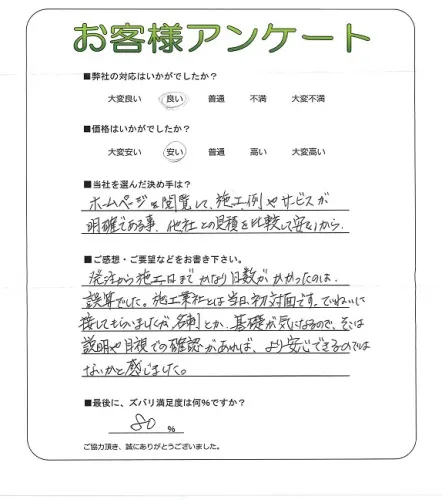 お客様アンケート
■弊社の対応はいかがでしたか?
大変良い 良い 普通 不満 大変不満
■価格はいかがでしたか?
大変安い 安い 普通 高い 大変高い
■当社を選んだ決め手は?
ホームページを閲覧して、施工例やサービスが
明確である事、他社との見積を比較して安いから。
■ご感想・ご要望などをお書き下さい。
発注から施工日までかなり日数がかかったのは、
誤算でした。施工業社とは当日、初対面です。ていねいに
接してもらいましたが、とか、基礎が気になるので、そこは
説明や目視での確認があれば、より安心できるのでは
ないかと感じました。
■最後に、ズバリ満足度は何%ですか?
80 %
ご協力頂き、誠にありがとうございました。